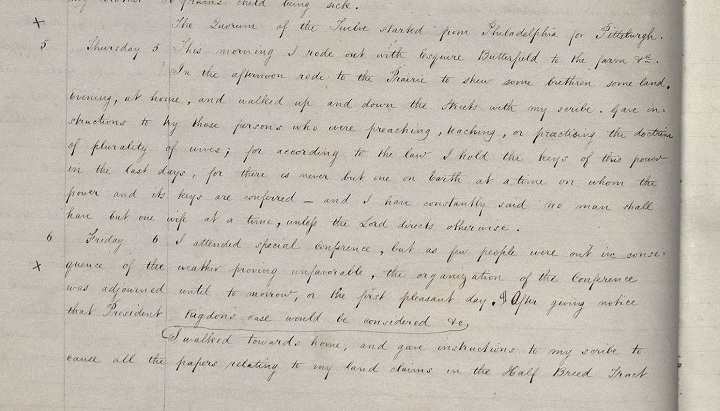 my brother          's child being sick.
x The Quorum of the Twelve started from Philadelphia for Pittsburgh.
5 Thursday 5 This morning I rode out with Esquire Butterfield to the farm &c.
In the afternoon rode to the Prairie to shew some brethren some land.
Evening, at home, and walked up and down the Streets with my scribe. Gave in-
structions to try those persons who were preaching, teaching, or practising the doctrine
of plurality of wives; for according to the law I hold the keys of this power
in the last days, for there is never but one on Earth at a time on whom the
power and its keys are conferred — and I have constantly said no man shall
have but one wife at a time, unless the Lord directs otherwise.
6 Friday 6 I attended special conference, but as few people were out in conse-
x quence of the weather proving unfavorable, the organization of the Conference
was adjourned until to morrow, or the first pleasant day. After giving notice
that President Rigdons case would be considered &c
I walked towards home, and gave instructions to my scribe to
cause all the papers relating to my land claims in the Half Breed Tract